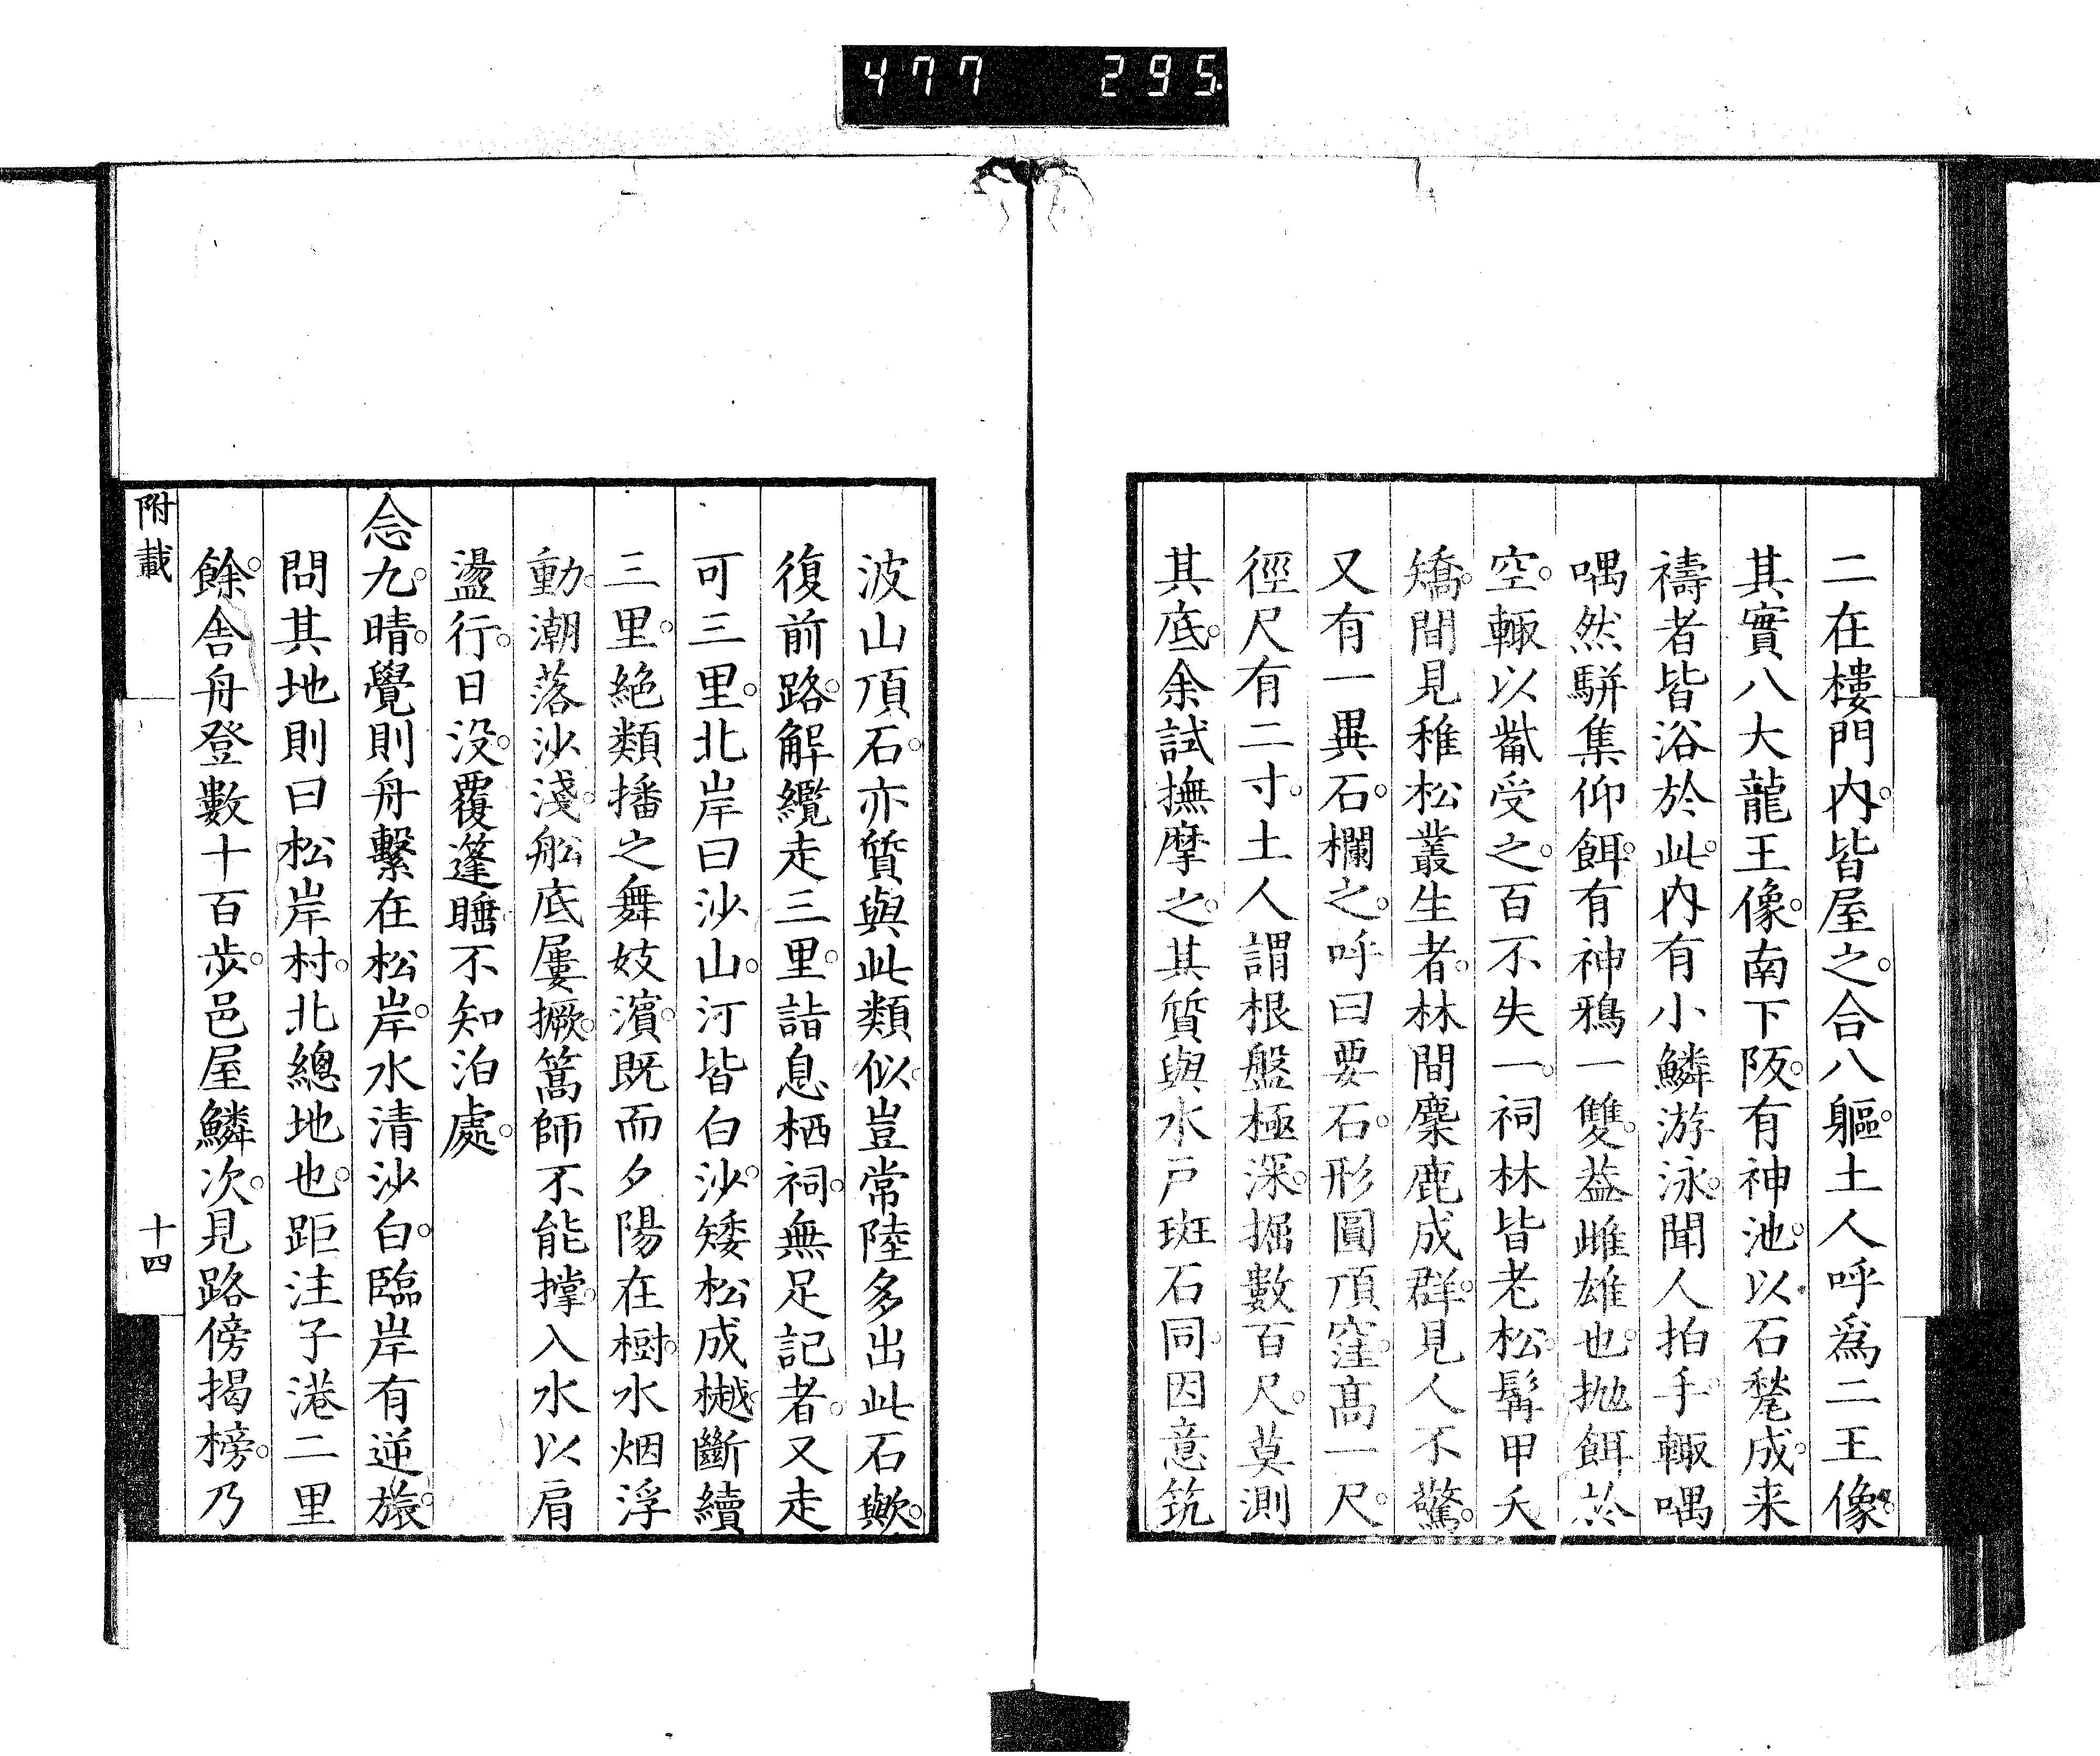 477 295
二在樓門内。皆屋之。合八軀。土人呼爲二王像。
其實八大龍王像。南下阪。有神池。以石甃成。来
禱者皆浴於此。内有小鱗游泳。聞人拍手。輙喁
喁然駢集仰餌。有神鴉一雙。葢雌雄也。拋餌於
空。輙以觜受之。百不失一。祠林皆老松。髯甲夭
矯。間見稚松叢生者。林間麋鹿成群。見人不驚。
又有一異石。石欄之。呼曰要石。形圓頂窪。高一尺。
徑尺有二寸。土人謂根盤極深。掘數百尺。莫測
其底。余試撫摩之。其質與水戸斑石同。因意筑
波山頂石。亦質與此類似。豈常陸多出此石歟。
復前路。解纜走三里。詣息栖祠。無足記者。又走
可三里。北岸曰沙山。河皆白沙。矮松成樾。斷續
三里。絶類播之舞妓濱。既而夕陽在樹。水烟浮
動。潮落沙淺。舩底屢撅。篙師不能撑。入水以肩
盪行。日没。覆篷睡。不知泊處。
念九。晴。覺則舟繫在松岸。水清沙白。臨岸有逆旅。
問其地則曰松岸村。北總地也。距注子港二里
餘。舎舟登數十百歩。邑屋鱗次。見路傍揭榜。乃
附載
十四